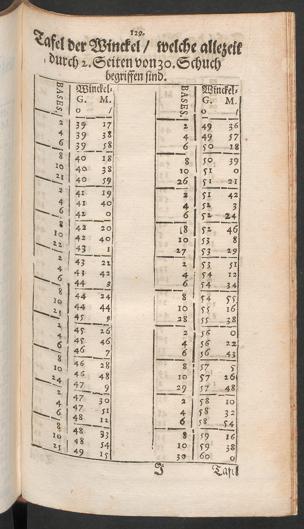 129.
Tafel der Winckel / welche allezeit
durch 2. Seiten von 30. Schuch
begriffen sind.
BASES. Winckel.
G. M.
0 /
2 39 17
4 39 38
6 39 58
8 40 18
10 40 38
21 40 59
2 41 19
4 41 40
6 42 0
8 42 20
10 42 40
22 43 1
2 43 21
4 43 42
6 44 3
8 44 24
10 44 44
23 45 5
2 45 26
4 45 46
6 46 7
8 46 28
10 46 48
24 47 9
2 47 30
4 47 51
6 48 12
8 48 33
10 48 54
25 49 15
BASES. Winckel.
G. M.
0 /
2 49 36
4 49 57
6 50 18
8 50 39
10 51 0
26 51 21
2 51 42
4 52 3
6 52 24
8 52 46
10 53 8
27 53 29
2 53 51
4 54 12
6 54 34
8 54 55
10 55 16
28 55 38
2 56 0
4 56 22
6 56 43
8 57 5
10 57 26
29 57 48
2 58 10
4 58 32
6 58 54
8 59 16
10 59 38
30 60 0
J Tafel